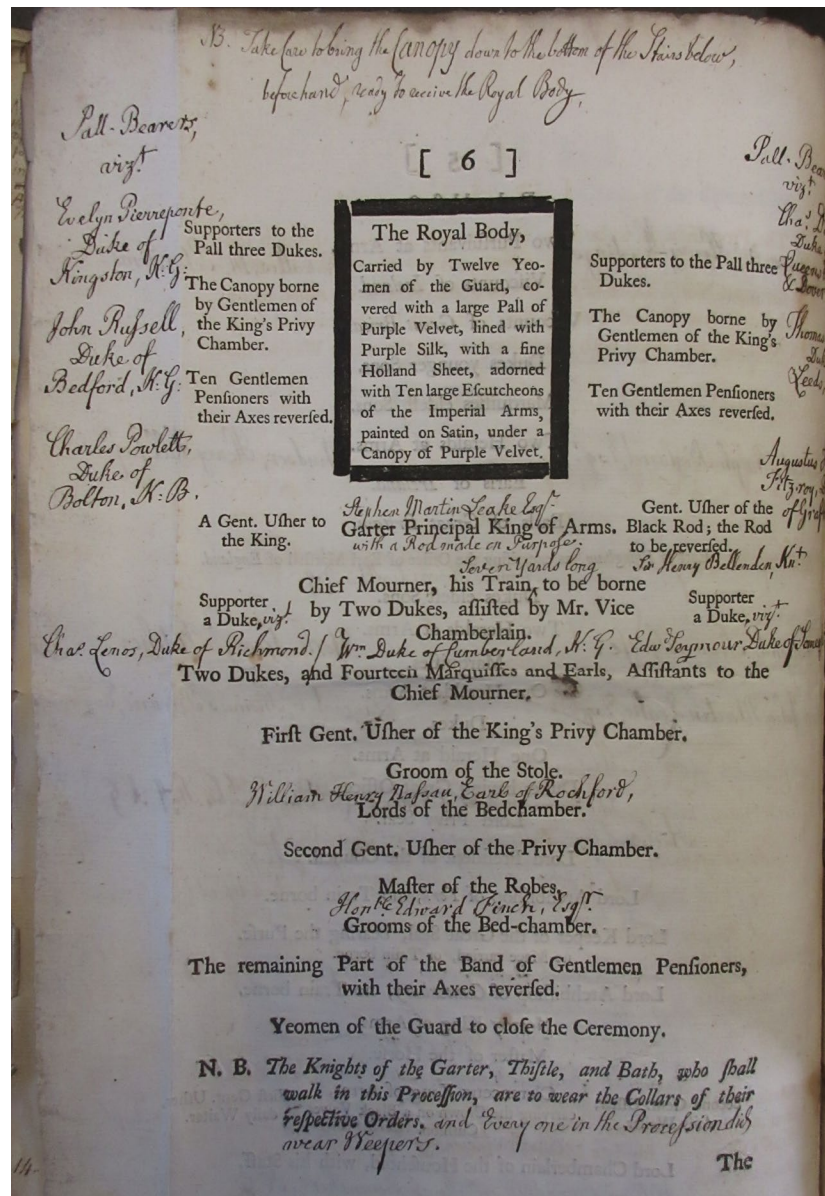 NB. Take Care to bring the Canopy down to the bottom of the Stairs below,
beforehand, ready to receive the Royal Body,
Pall-Bearers,
vizt
Evelyn Pierreponte,
Duke of
Kingston, K:G:
John Russell,
Duke of
Bedford, K:G:
Charles Powlett,
Duke of
Bolton, K:B.
[ 6 ]
Supporters to the
Pall three Dukes.
The Canopy borne
by Gentlemen of
the King's Privy
Chamber.
Ten Gentlemen
Penſioners with
their Axes reverſed.
The Royal Body,
Carried by Twelve Yeo-
men of the Guard, co-
vered with a large Pall of
Purple Velvet, lined with
Purple Silk, with a fine
Holland Sheet, adorned
with Ten large Eſcutcheons
of the Imperial Arms,
painted on Satin, under a
Canopy of Purple Velvet.
Supporters to the Pall three
Dukes.
The Canopy borne by
Gentlemen of the King's
Privy Chamber.
Ten Gentlemen Penſioners
with their Axes reverſed.
Pall-Bea
vizt
Chas D
Duke
Queens
& Dover
Thomas
Duk
Leeds,
Augustus
Fitzroy,
of Graf
A Gent. Uſher to
the King.
Stephen Martin Leake Esqr.
Garter Principal King of Arms.
with a Rod made on Purpose.
Gent. Uſher of the
Black Rod; the Rod
to be reverſed.
Sr Henry Bellenden, Knt
Seven Yards long
Chief Mourner, his Train, to be borne
by Two Dukes, aſſiſted by Mr. Vice
Chamberlain.
Supporter
a Duke, vizt
Supporter
a Duke, vizt
Chas. Lenos, Duke of Richmond. / Wm Duke of Cumberland, K:G. Edw Seymour Duke of Some
Two Dukes, and Fourteen Marquiſſes and Earls, Aſſiſtants to the
Chief Mourner.
Firſt Gent. Uſher of the King's Privy Chamber.
Groom of the Stole.
William Henry Nassau, Earl of Rochford,
Lords of the Bedchamber.
Second Gent. Uſher of the Privy Chamber.
Maſter of the Robes,
Honble Edward Finch, Esqr.
Grooms of the Bed-chamber.
The remaining Part of the Band of Gentlemen Penſioners,
with their Axes reverſed.
Yeomen of the Guard to cloſe the Ceremony.
N. B. The Knights of the Garter, Thiſtle, and Bath, who ſhall
walk in this Proceſſion, are to wear the Collars of their
reſpective Orders. and Every one in the Procession did
wear Weepers.
14
The